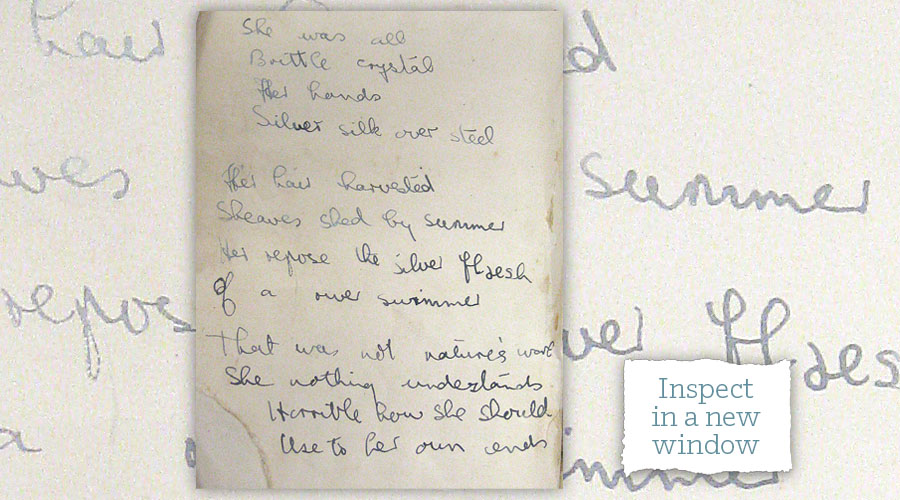 She was all
Brittle crystal
Her hands
Silver silk over steel
Her hair harvested
Sheaves shed by summer
Her repose the silver
Of a river swimmer
That was not nature's work
She nothing understands
Horrible how she should
Use to her own ends
Inspect
in a new
window